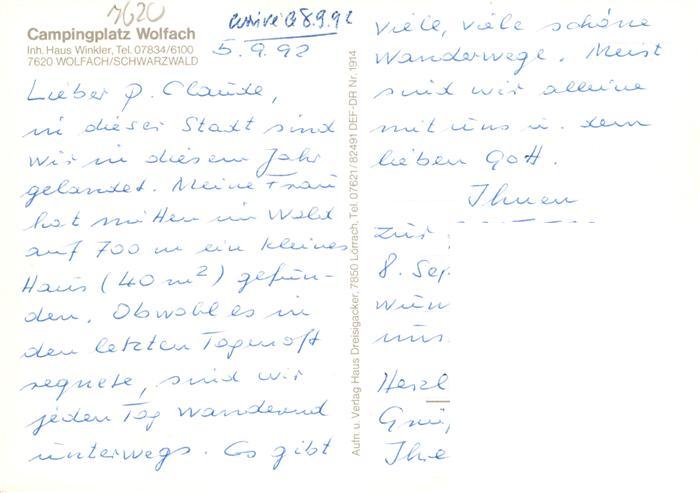 7620
arrivé le 8.9.92
Campingplatz Wolfach
Inh. Haus Winkler, Tel. 07834/6100
7620 WOLFACH/SCHWARZWALD
5.9.92
Lieber P. Claude,
in dieser Stadt sind
wir in diesem Jahr
gelandet. Meine Frau
hat mitten im Wald
auf 700 m ein kleines
Haus (40 m²) gefun-
den. Obwohl es in
den letzten Tagen oft
regnete, sind wir
jeden Tag wandernd
unterwegs. Es gibt
Aufn. u. Verlag Haus Dreisigacker, 7850 Lörrach, Tel. 07621/82491 DEF-DR Nr. 1914
viele, viele schöne
Wanderwege. Meist
sind wir alleine
mit uns u. dem
lieben Gott.
Ihnen
zur
8. Sep
wün
uns
Herzl
Grü
Ihre